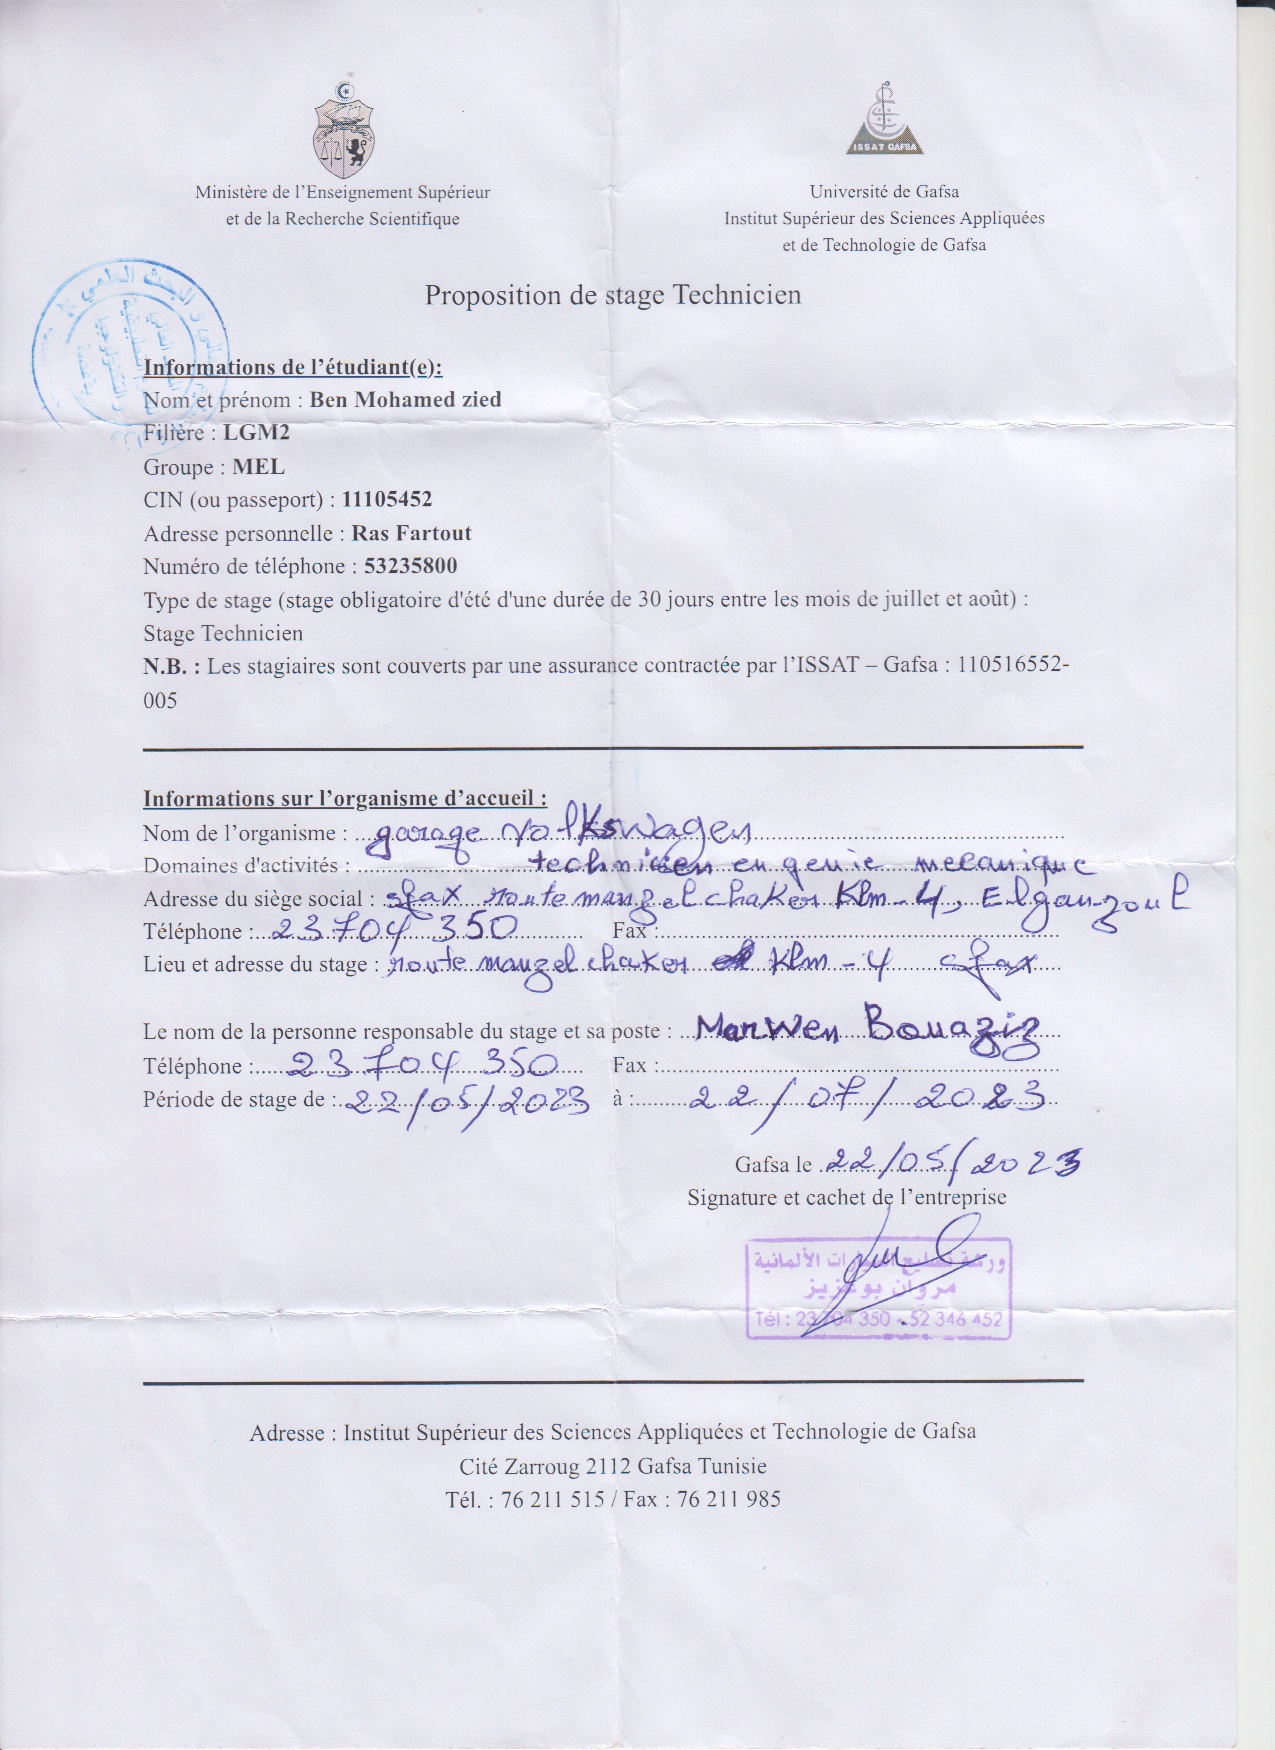 ISSAT GAFSA
Ministère de l'Enseignement Supérieur
et de la Recherche Scientifique
Université de Gafsa
Institut Supérieur des Sciences Appliquées
et de Technologie de Gafsa
Proposition de stage Technicien
Informations de l'étudiant(e):
Nom et prénom : Ben Mohamed zied
Filière : LGM2
Groupe : MEL
CIN (ou passeport) : 11105452
Adresse personnelle : Ras Fartout
Numéro de téléphone : 53235800
Type de stage (stage obligatoire d'été d'une durée de 30 jours entre les mois de juillet et août) :
Stage Technicien
N.B. : Les stagiaires sont couverts par une assurance contractée par l'ISSAT – Gafsa : 110516552-
005
Informations sur l'organisme d'accueil :
Nom de l'organisme : garage Volkswagen
Domaines d'activités : technicien en genie mecanique
Adresse du siège social : sfax route manzel chaker Klm-4, Elganzoul
Téléphone : 23704 350 Fax :
Lieu et adresse du stage : route manzel chaker Klm-4 sfax
Le nom de la personne responsable du stage et sa poste : Marwen Bouaziz
Téléphone : 23704 350 Fax :
Période de stage de : 22/05/2023 à : 22/07/2023
Gafsa le 22/05/2023
Signature et cachet de l'entreprise
ورشة تصليح السيارات الألمانية
مروان بوعزيز
Tél : 23 704 350 - 52 346 452
Adresse : Institut Supérieur des Sciences Appliquées et Technologie de Gafsa
Cité Zarroug 2112 Gafsa Tunisie
Tél. : 76 211 515 / Fax : 76 211 985